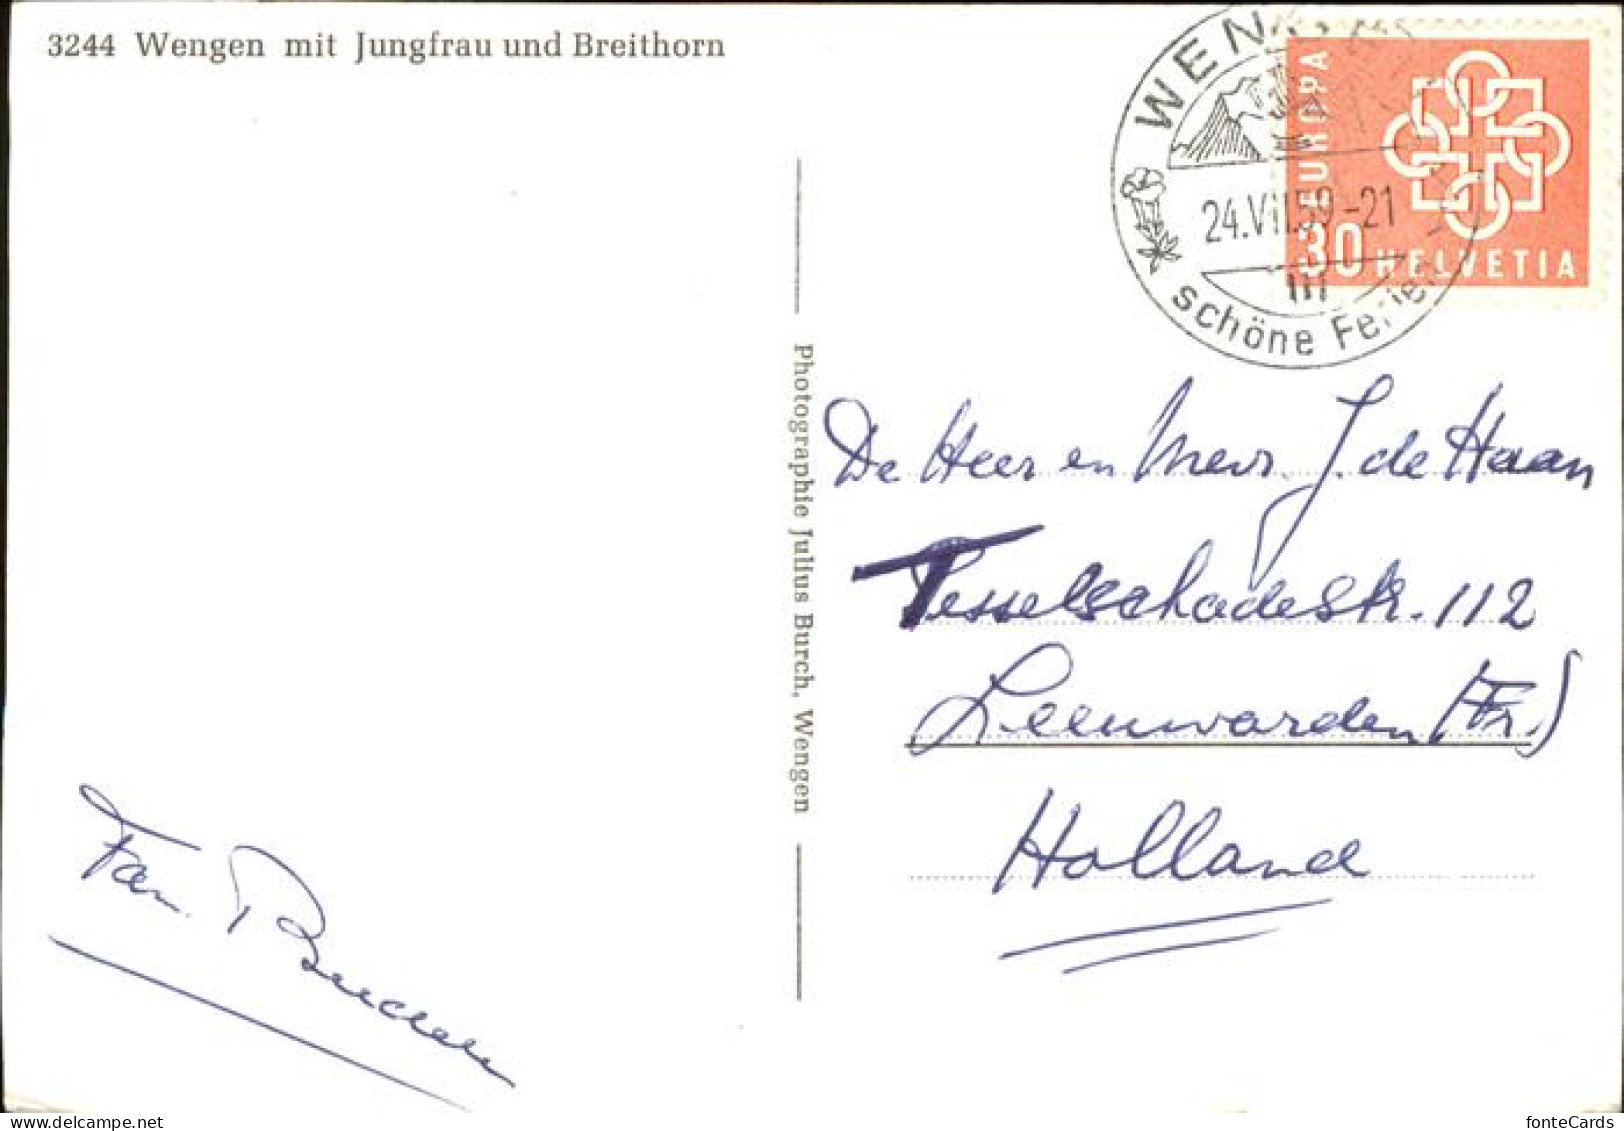 3244 Wengen mit Jungfrau und Breithorn
WENGEN
24.VII.59-21
schöne Ferien
EUROPA
30 HELVETIA
Photographie Julius Burch, Wengen
De Heer en Mevr. J. de Haan
Tesselschadestr. 112
Leeuwarden (Fr.)
Holland
Fam.
fonteCards